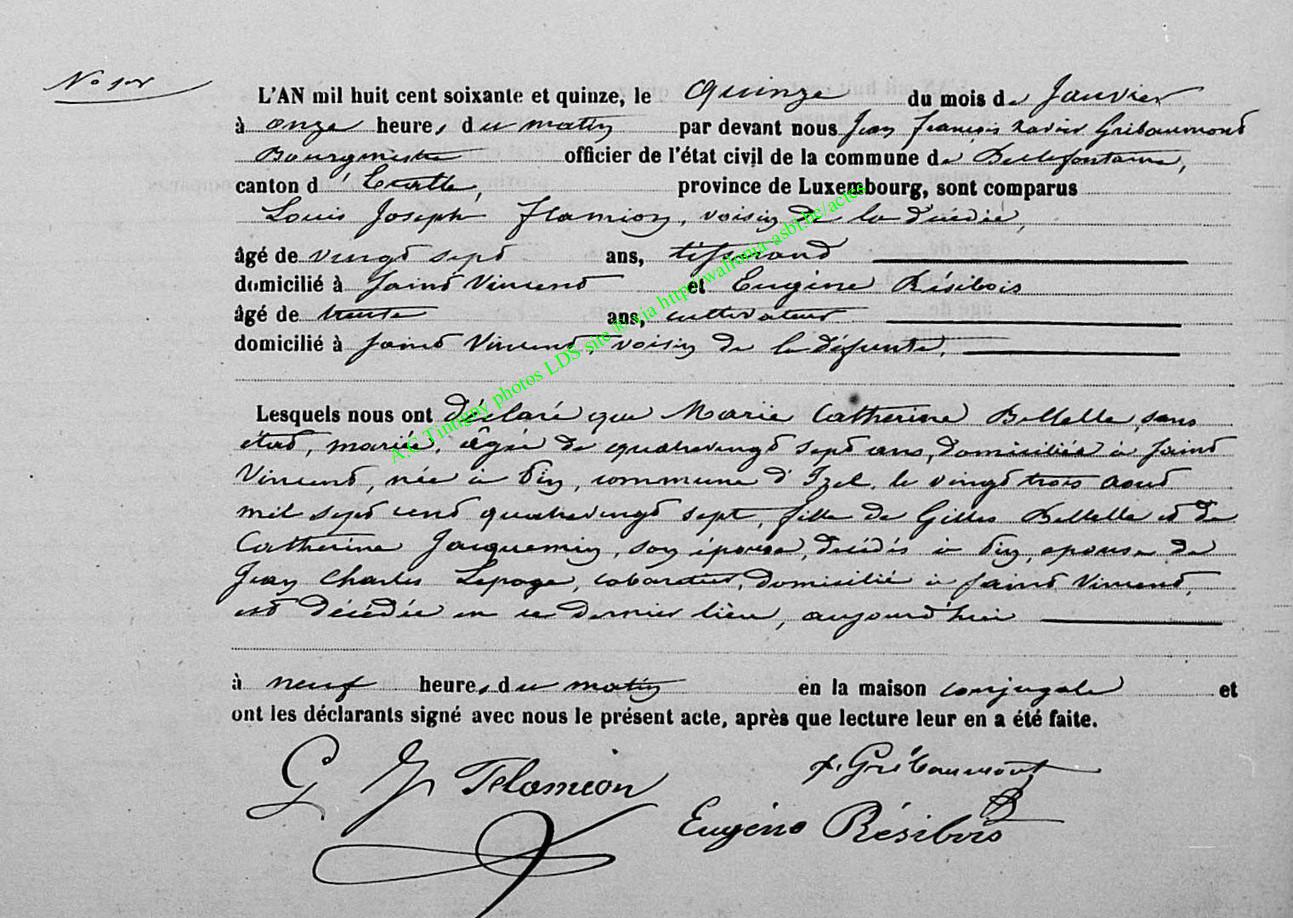 N° 1er
L'AN mil huit cent soixante et quinze, le quinze du mois de Janvier
à onze heures du matin par devant nous Jean François Xavier Gribaumont
Bourgmestre officier de l'état civil de la commune de Bellefontaine,
canton d'Etalle, province de Luxembourg, sont comparus
Louis Joseph Flamion, voisin de la décédée,
âgé de vingt sept ans, tisserand
domicilié à Saint Vincent et Eugène Résibois
âgé de trente ans, cultivateur
domicilié à Saint Vincent, voisin de la défunte,
Lesquels nous ont déclaré que Marie Catherine Belleflle sans
état, mariée, âgée de quatrevingt sept ans, domiciliée à Saint
Vincent, née à Pin, commune d'Izel, le vingt trois aout
mil sept cent quatrevingt sept, fille de Gilles et de
Catherine Jacquemin, son épouse, décédés à Pin, épouse de
Jean Charles Lepage, cabaretier, domicilié à Saint Vincent,
est décédée en ce dernier lieu, aujourd'hui
à neuf heures du matin en la maison conjugale et
ont les déclarants signé avec nous le présent acte, après que lecture leur en a été faite.
Flamion
x. Gribaumont
Eugène Résibois
A.G Tintigny photos LDS site R via http/wallonia-asbl.be/actes